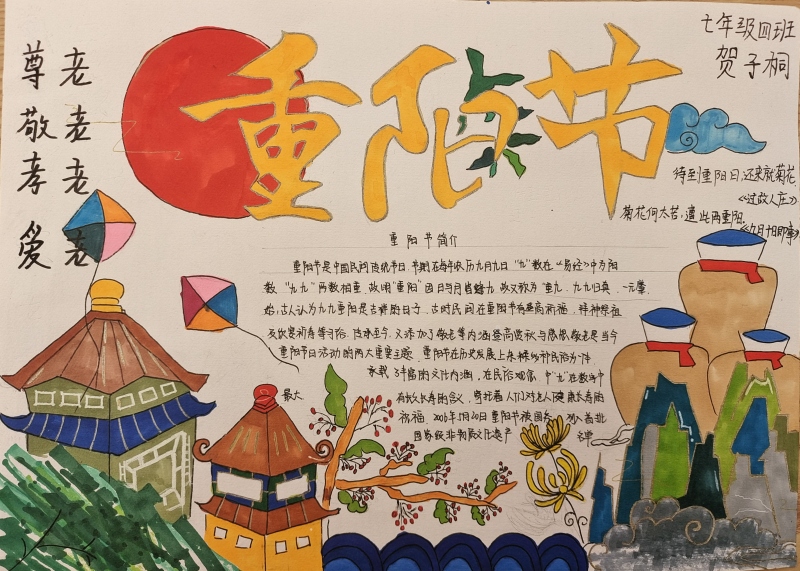 重阳节
七年级四班
贺子桐
尊老
敬老
孝老
爱老
待至重阳日,还来就菊花
《过故人庄》
菊花何太苦,遭此两重阳
《九月十日即事》
重阳节简介
重阳节是中国民间传统节日,节期在每年农历九月九日 “九”数在《易经》中为阳
数 “九九”两数相重,故明“重阳”因日与月皆逢九,故又称为“重九、九九归真,一元肇
始,古人认为九九重阳是吉祥的日子、古时民间在重阳节有登高祈福、拜神祭祖
及饮宴祈寿等习俗,传承至今,又添加了敬老等内涵登高赏秋与感恩敬老是当今
重阳节日活动的两大重要主题,重阳节在历史发展上杂糅多种民俗为一体
承载了丰富的文化内涵,在民俗观念中“九”在数字中
最大
有长久长寿的含义,寄托着人们对老人健康长寿的
祝福,2006年5月20日重阳节被国务 列入首批
国家级非物质文化遗产